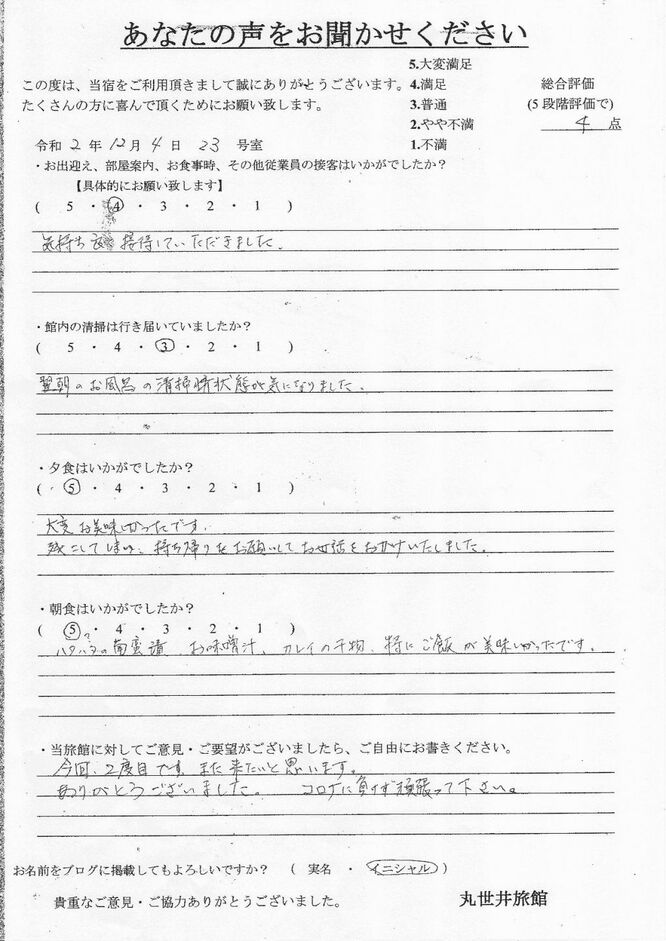 あなたの声をお聞かせください
この度は、当宿をご利用頂きまして誠にありがとうございます。
たくさんの方に喜んで頂くためにお願い致します。
5.大変満足
4.満足
3.普通
2.やや不満
1.不満
総合評価
(5段階評価で)
4 点
令和 2 年 12月 4 日 23 号室
・お出迎え、部屋案内、お食事時、その他従業員の接客はいかがでしたか？
【具体的にお願い致します】
( 5 ・ 4 ・ 3 ・ 2 ・ 1 )
気持ち 接待していただきました。
・館内の清掃は行き届いていましたか？
( 5 ・ 4 ・ 3 ・ 2 ・ 1 )
翌朝のお風呂の清掃状態が気になりました。
・夕食はいかがでしたか？
( 5 ・ 4 ・ 3 ・ 2 ・ 1 )
大変お美味しかったです。
残こしてしまい、持ち帰りをお願いしてお世話をおかけいたしました。
・朝食はいかがでしたか？
( 5 ・ 4 ・ 3 ・ 2 ・ 1 )
ハタハタの南蛮漬、お味噌汁、カレイの干物、特にご飯が美味しかったです。
・当旅館に対してご意見・ご要望がございましたら、ご自由にお書きください。
今回、2度目です。また来たいと思います。
ありがとうございました。 コロナに負けず頑張って下さい。
お名前をブログに掲載してもよろしいですか？ ( 実名 ・ イニシャル )
貴重なご意見・ご協力ありがとうございました。
丸世井旅館